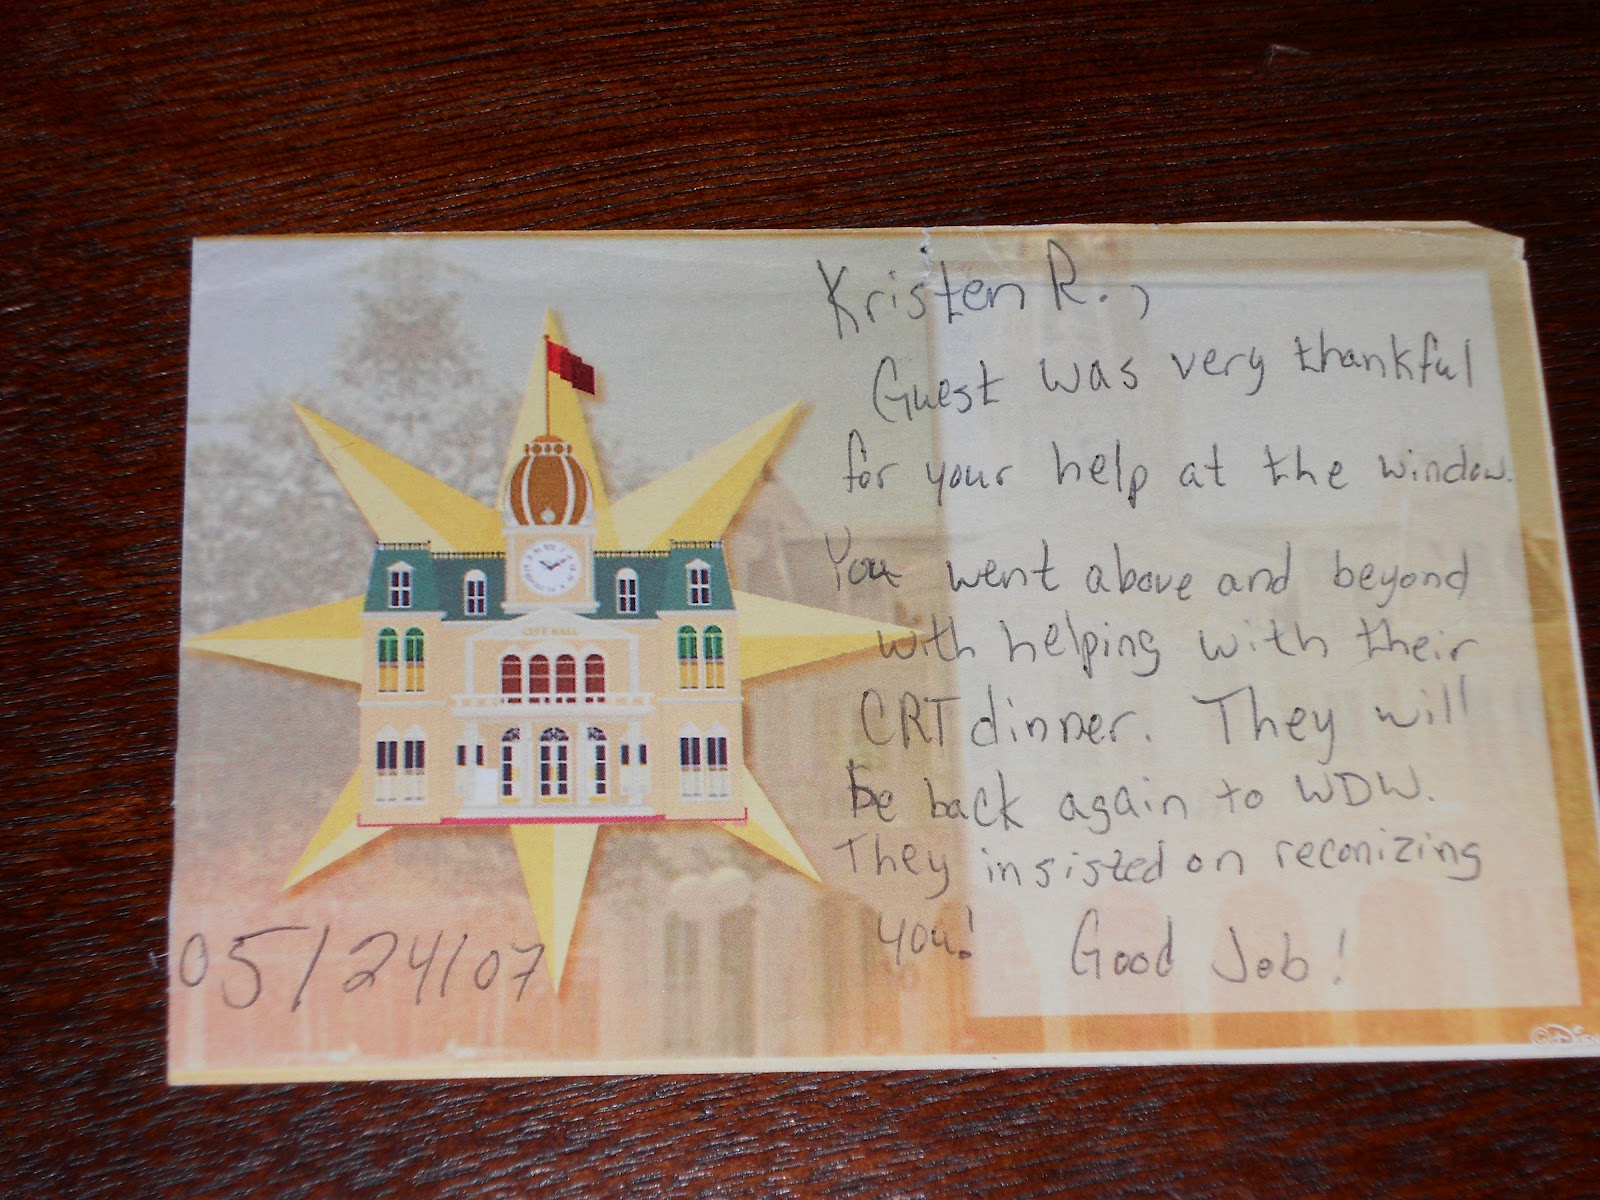 Kristen R.,
Guest was very thankful
for your help at the window.
You went above and beyond
with helping with their
CRT dinner. They will
be back again to WDW.
They insisted on reconizing
you! Good Job!
05/24/07
CITY HALL